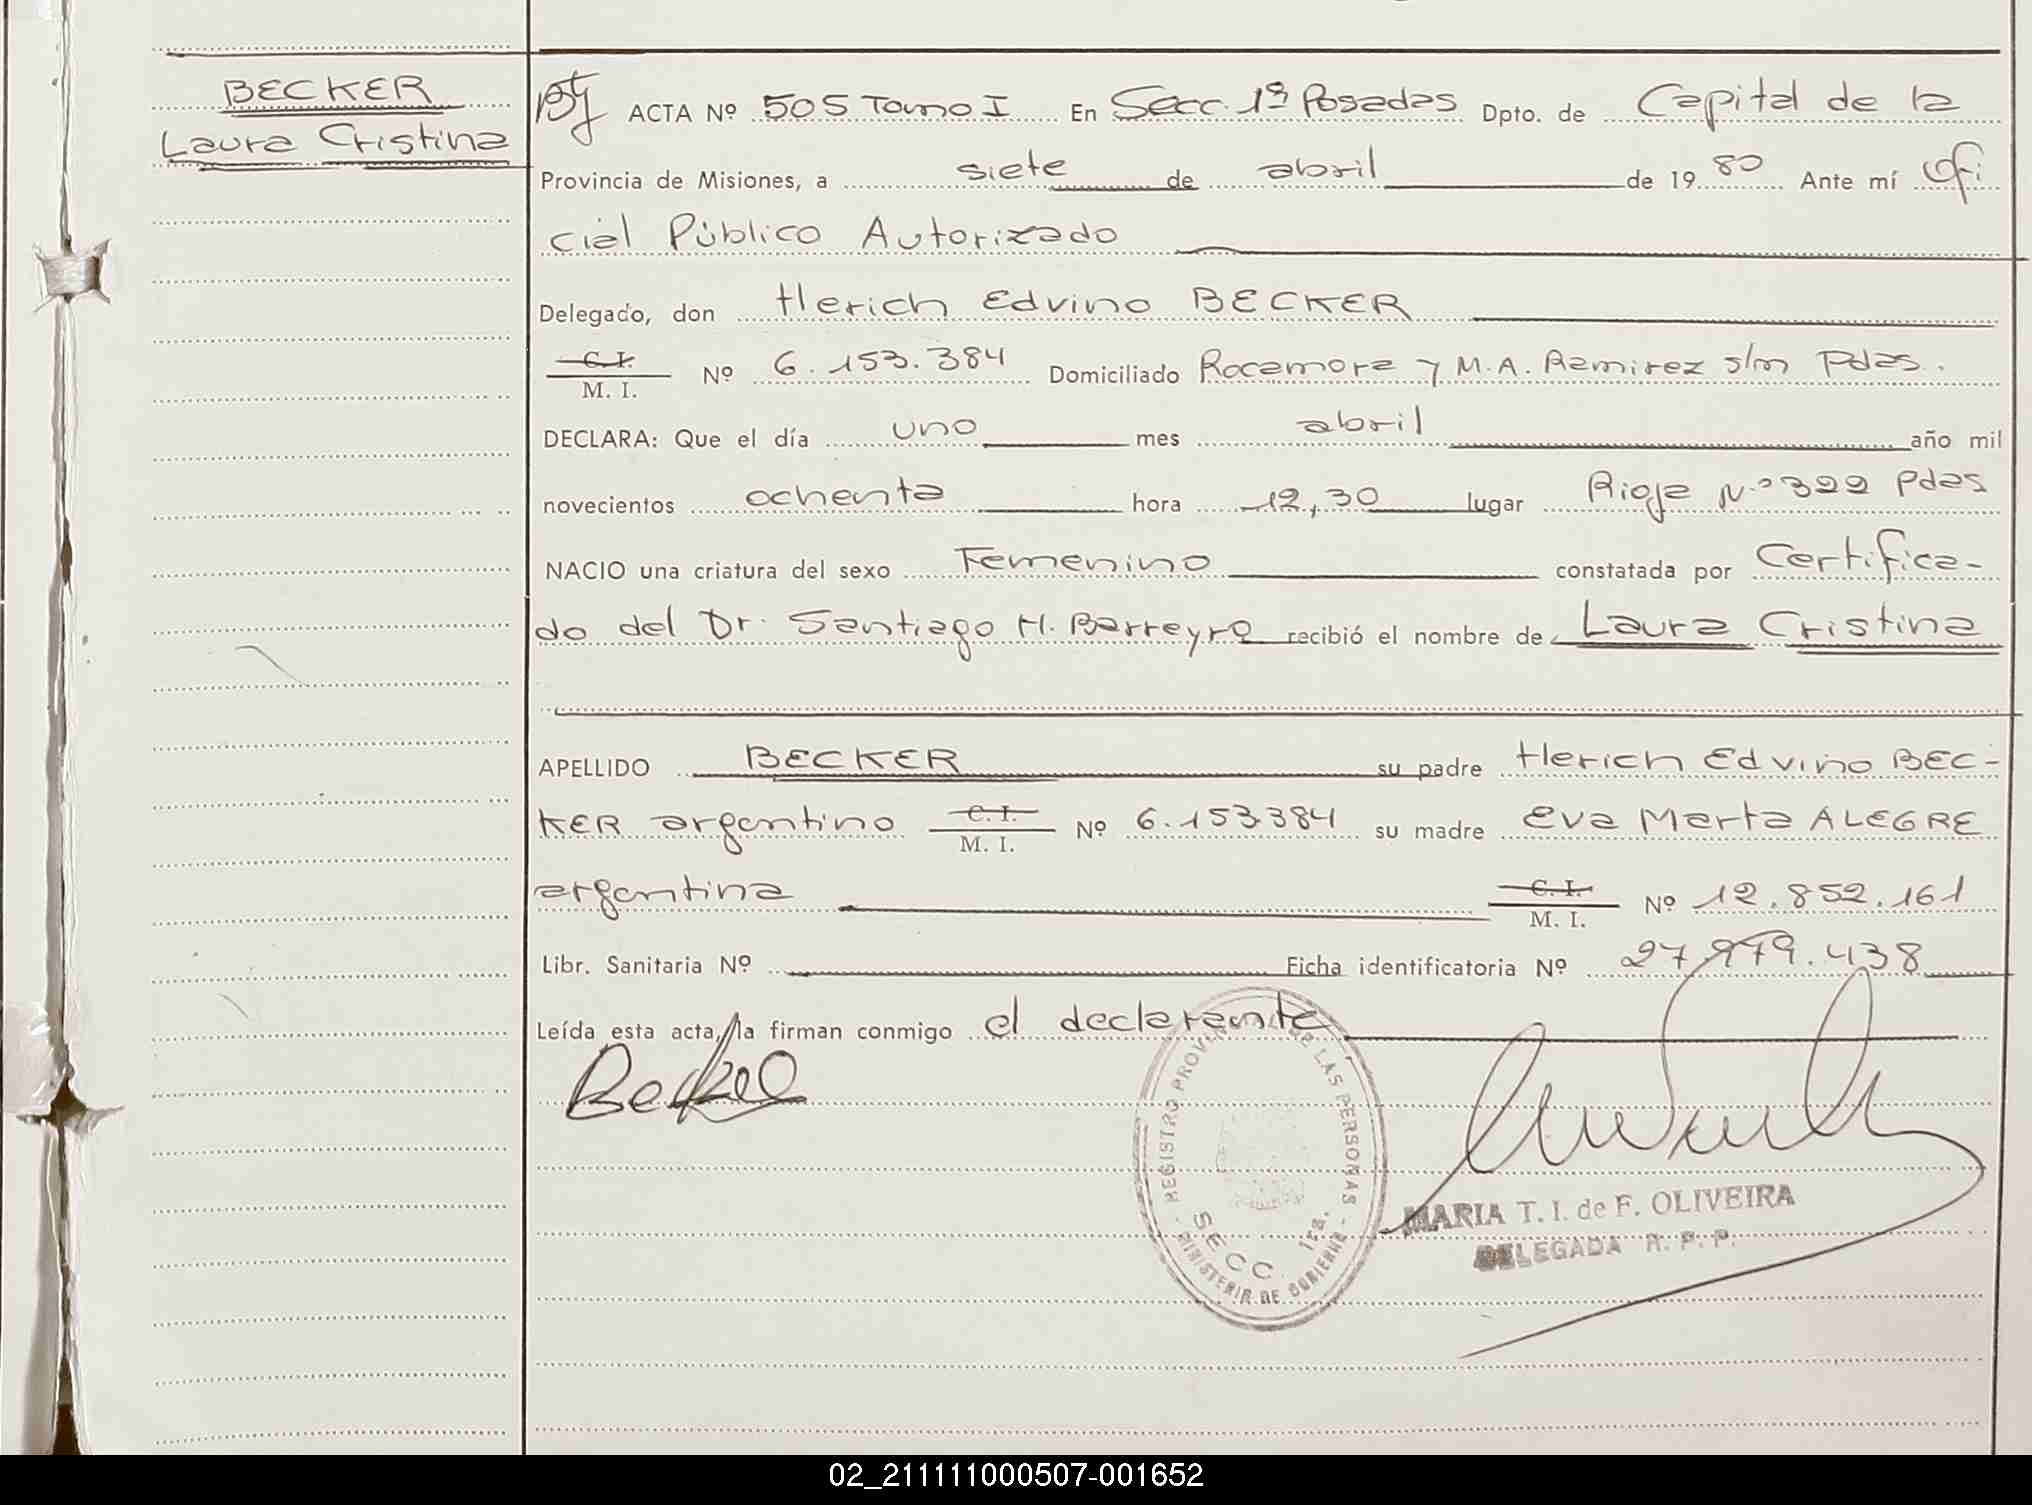 BECKER
Laura Cristina
ACTA Nº 505 Tomo I En Secc. 1ª Posadas Dpto. de Capital de la
Provincia de Misiones, a siete de abril de 1980 Ante mí Ofi
cial Público Autorizado
Delegado, don Herich Edvino BECKER
C.I.
M. I. Nº 6.153.384 Domiciliado Rocamora y M.A. Ramirez s/n Pdas.
DECLARA: Que el día uno mes abril año mil
novecientos ochenta hora 12,30 lugar Rioja Nº 322 Pdas
NACIO una criatura del sexo Femenino constatada por Certifica-
do del Dr. Santiago H. Barreyro recibió el nombre de Laura Cristina
APELLIDO BECKER su padre Herich Edvino BEC-
KER argentino C.I. M. I. Nº 6.153.384 su madre Eva Marta ALEGRE
argentina C.I. M. I. Nº 12.852.161
Libr. Sanitaria Nº Ficha identificatoria Nº 27.979.438
Leída esta acta, la firman conmigo el declarante
Becker
REGISTRO PROVINCIAL DE LAS PERSONAS
SECC. 1ra.
MINISTERIO DE GOBIERNO
MARIA T. I. de F. OLIVEIRA
DELEGADA R. P. P.
02_211111000507-001652